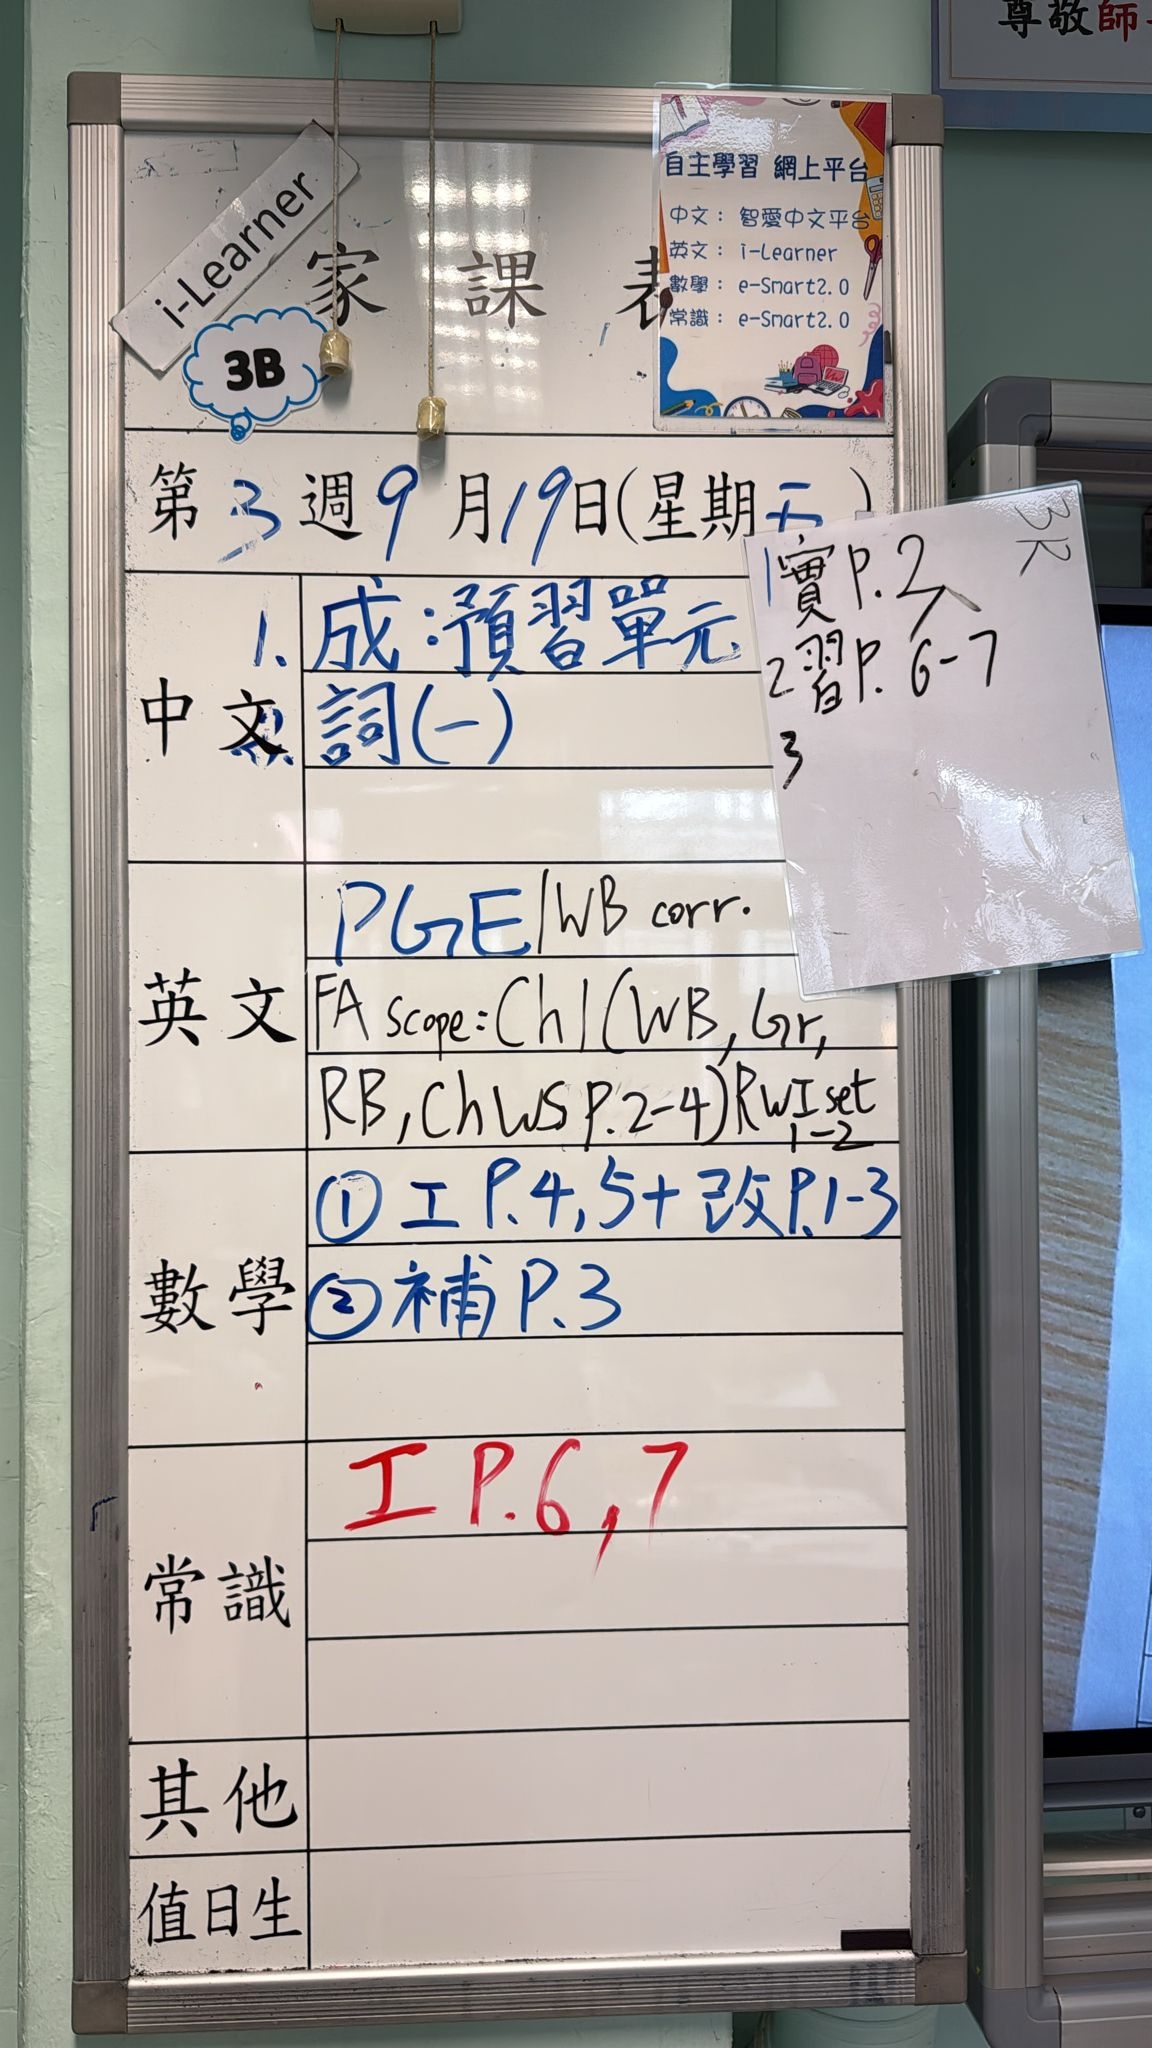 尊敬師
i-Learner
家 課 表
3B
自主學習 網上平台
中文： 智愛中文平台
英文： i-Learner
數學： e-Smart2.0
常識： e-Smart2.0
第 3 週 9 月 19 日(星期五)
中文
1. 成:預習單元
詞(一)
3R
1 實 P.2
2 習 P. 6-7
3
英文
PGE/WB corr.
FA scope: Ch1 (WB, Gr,
RB, Ch WS P.2-4) RWI set
1-2
數學
① 工 P.4,5+改P.1-3
② 補 P.3
常識
工 P.6,7
其他
值日生